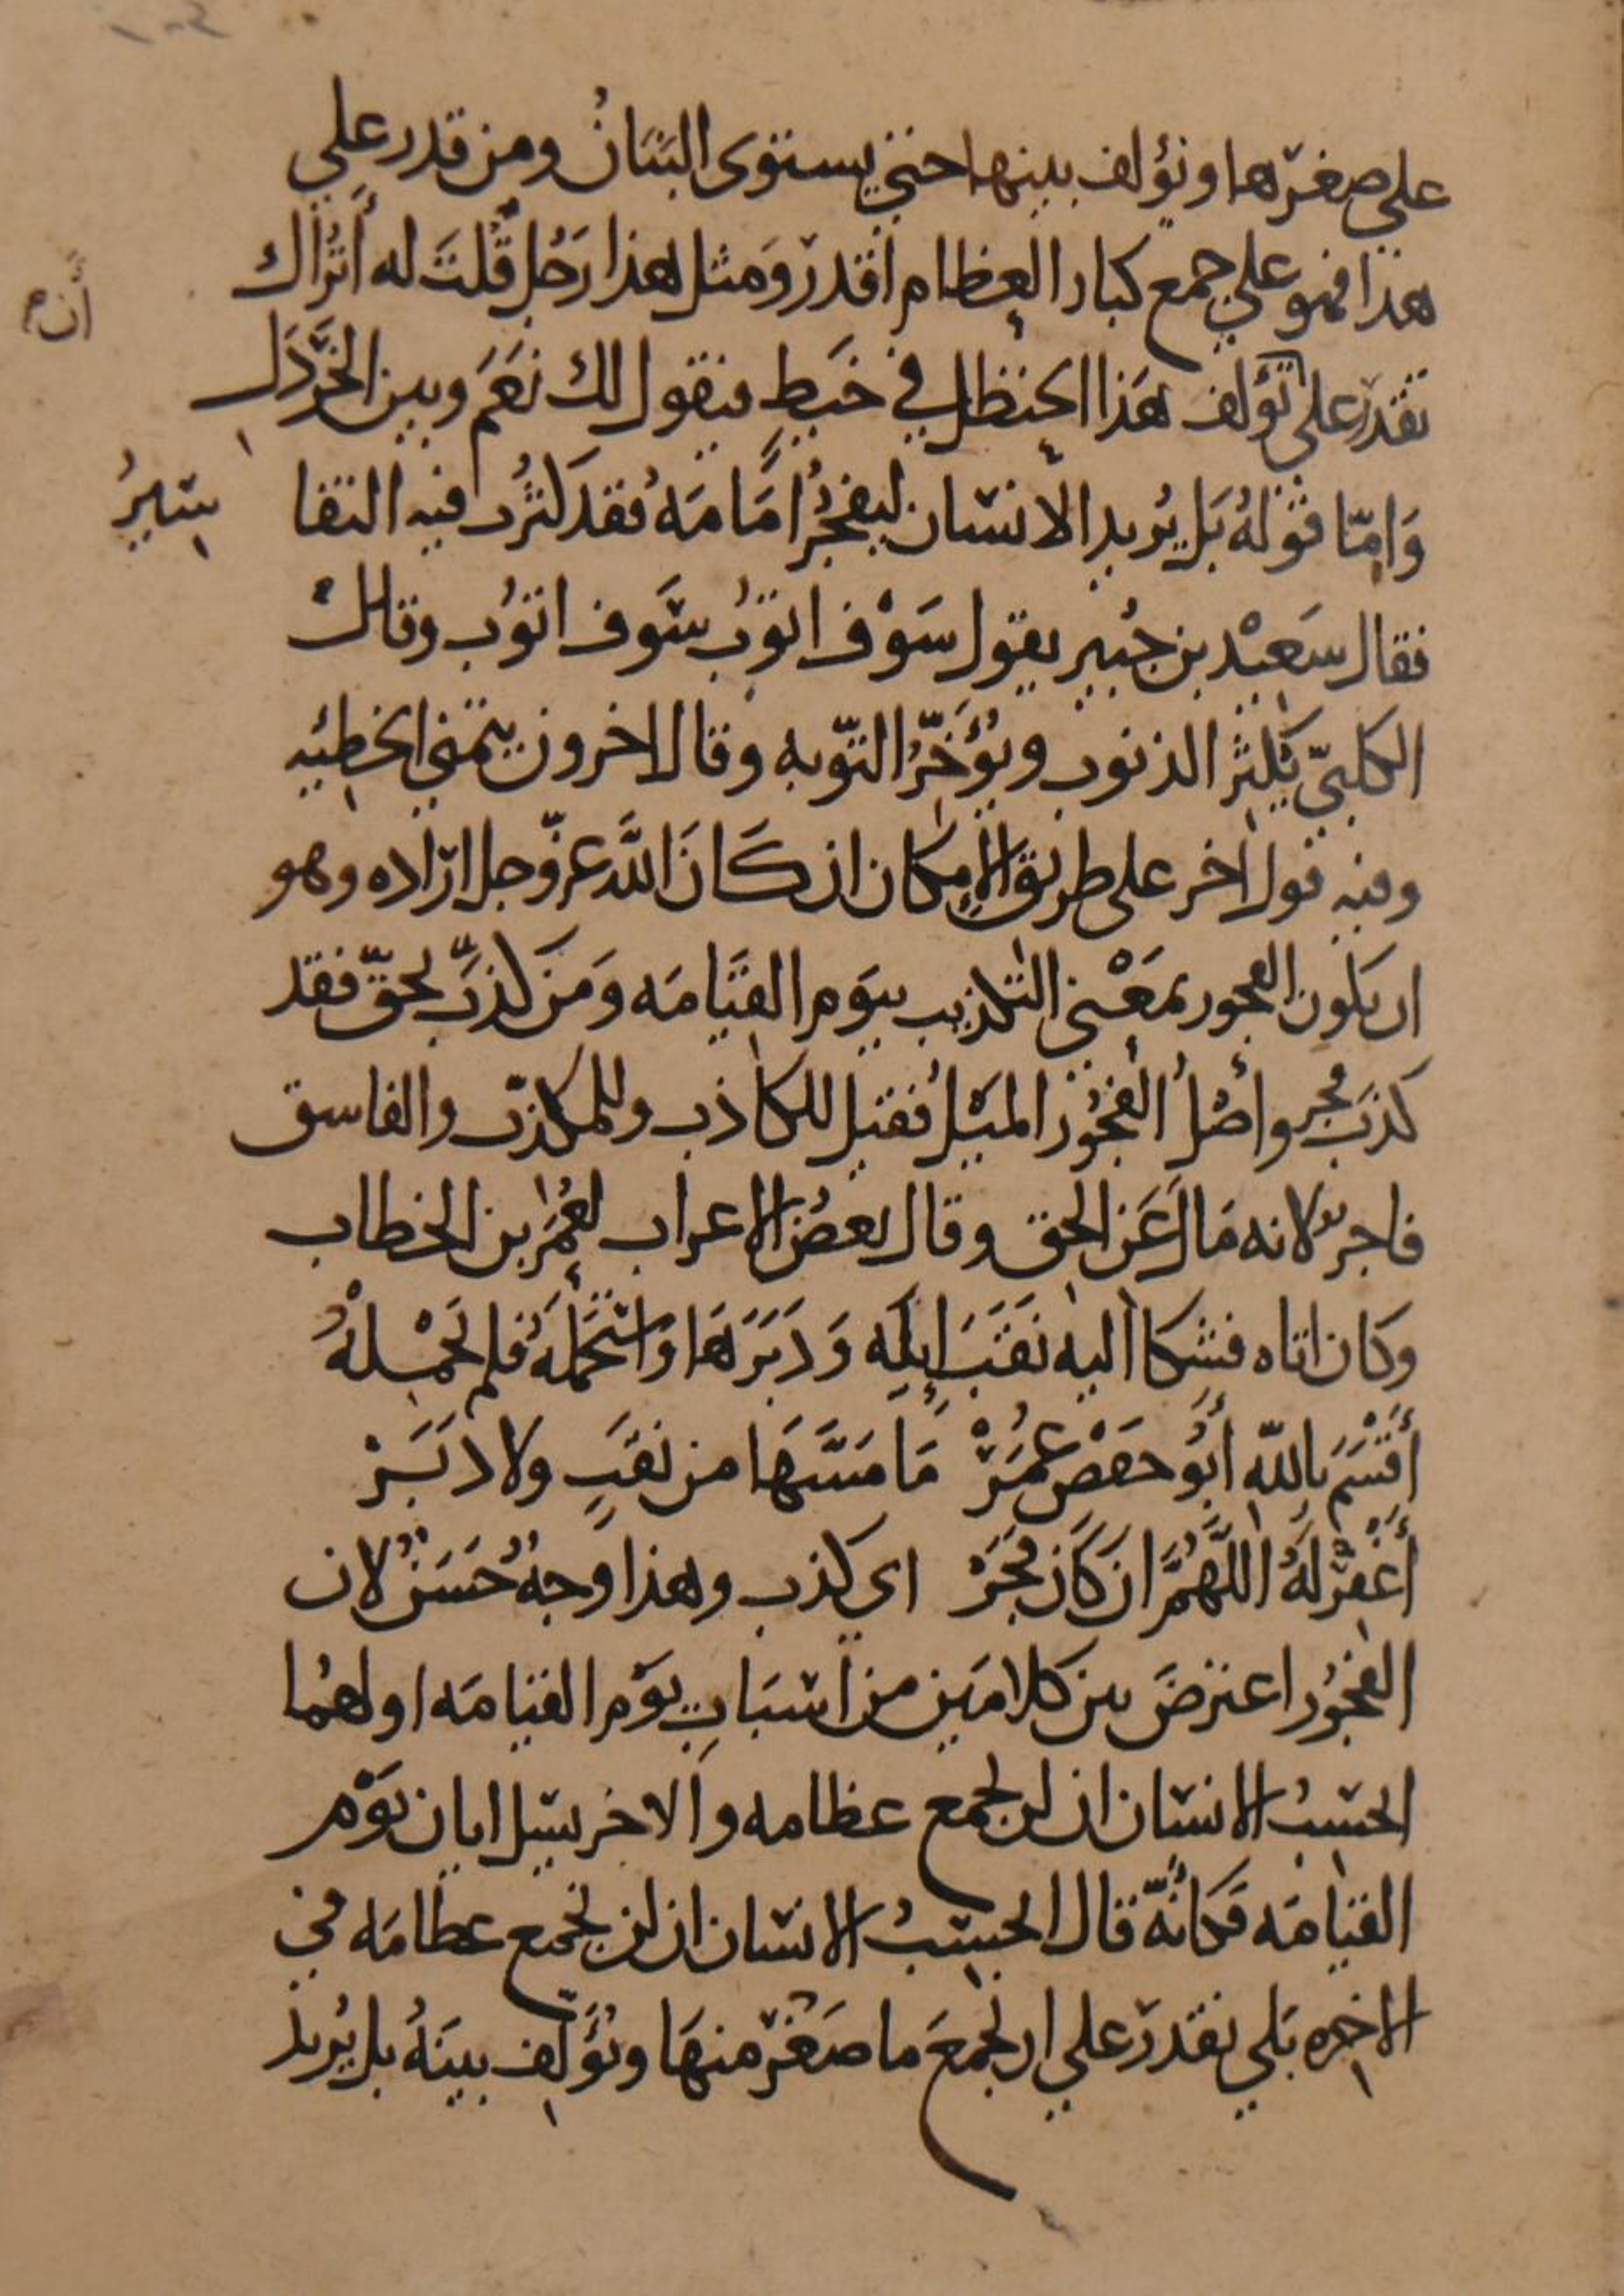 على صغرها ونؤلف بينها حتي يستوى البَنَانُ ومن قدر علي
هذا فهو علي جمع كبار العظام اقدر وَمثل هذا رَجُل قُلتَ له أَتُراك
أن
تقدر علي تؤلف هَذا الحنظل في خَيطٍ فيقول لك نَعَم وبين الخَردَل
وَامّا قولهُ بَل يُريد الانسان ليَفجُرَ امَامَهُ فقد كَثُرت فيه التفا
سيرُ
فقال سَعيْد بن جُبير يقول سَوْف اتوُبُ سَوف اتوُب وقال
الكلبيّ يُكثِرُ الذنوب ويُؤَخّرُ التّوبه وقال الاخرون يتمني الخطيئه
وفيه قول اخر على طريق الاِمكان ان كَانَ اللَّه عزّوجل اراده وهو
ان يكون الفجور بمَعْني التكذيب بيَوم القيَامَه وَمَن كَذبَ بحقّ فقد
كذبَ فجر وأصْلُ الفُجُور المَيْلُ فقيل للكاذب وللمكذّب والفاسق
فاجر لانه مَالَ عَن الحق وقال بعضُ الاعراب لعُمَر بن الخطاب
وكان اتاه فشكا اليه نَقَبَ إبِله وَدَبَرَهَا وَاسْتَحمَلَهُ فلم يَحْمِلهُ
أَقسَمَ باِللّه أبُو حَفْص عُمَرْ مَا مَسَّهَا من نقَبٍ ولا دَبَرْ
أغفِرْ لَهُ اللَّهُمَّ ان كَان فَجَرْ اي كذب وهذا وجهُ حُسَن لان
الفجُور اعترضَ بين كلامَين من اسبَابِ يَوْم القيامَه اولهُما
ايحسِبُ الانسَان ان لن نجمع عظامه والاخر يسل ايان يَوْم
القيَامَه فكَانَّه قال ايحسِبُ الانسَان ان لن نجمع عظامَه في
الاخره بَلي نقدر علي ان نجمَعَ ما صَغُرَ منهَا ونؤَلف بينَهُ بل يُريد